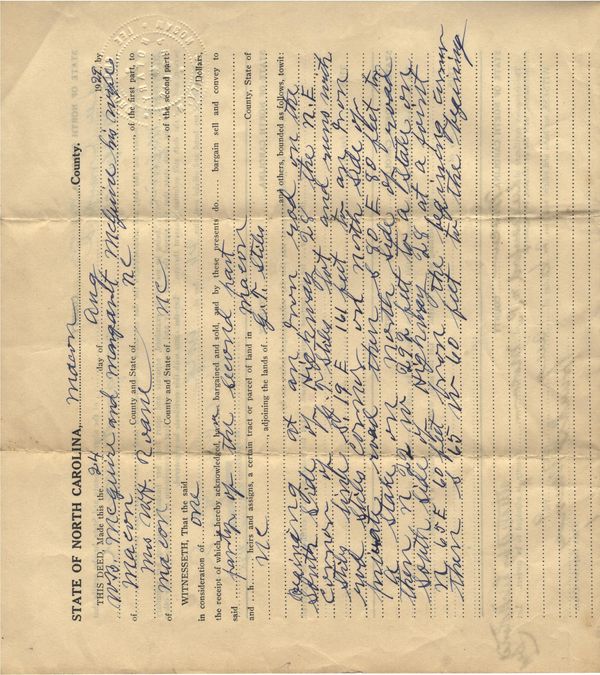 STATE OF NORTH CAROLINA, Macon County.
THIS DEED, Made this the 24 day of Aug 192, by
W.B. Mcguire and Margarett Mcguire his wife
of Macon County and State of NC, of the first part, to
Mrs Natt Roane
of Macon County and State of NC of the second part:
WITNESSETH, That the said
in consideration of one Dollars,
the receipt of which is hereby acknowledged, have bargained and sold, and by these presents do bargain sell and convey to
said party of the second part
and h heirs and assigns, a certain tract or parcel of land in Macon County, State of
NC, adjoining the lands of Stiles
and others, bounded as follows, towit:
Begining at an Iron rod on the
South Side of Highway 28 the N.E
Corner of Stiles lot and runs with
Stiles line S. 19 E 141 feet to an Iron
rod Stiles corner on North Side of
private road then S 80 E 80 feet to
a Stake on North Side of road
then N 22 W 292 feet to a Stake on
South Side of Highway 28 at a point
N 65 E 60 feet from the begining corner
then S 65 W 60 feet to the Begining